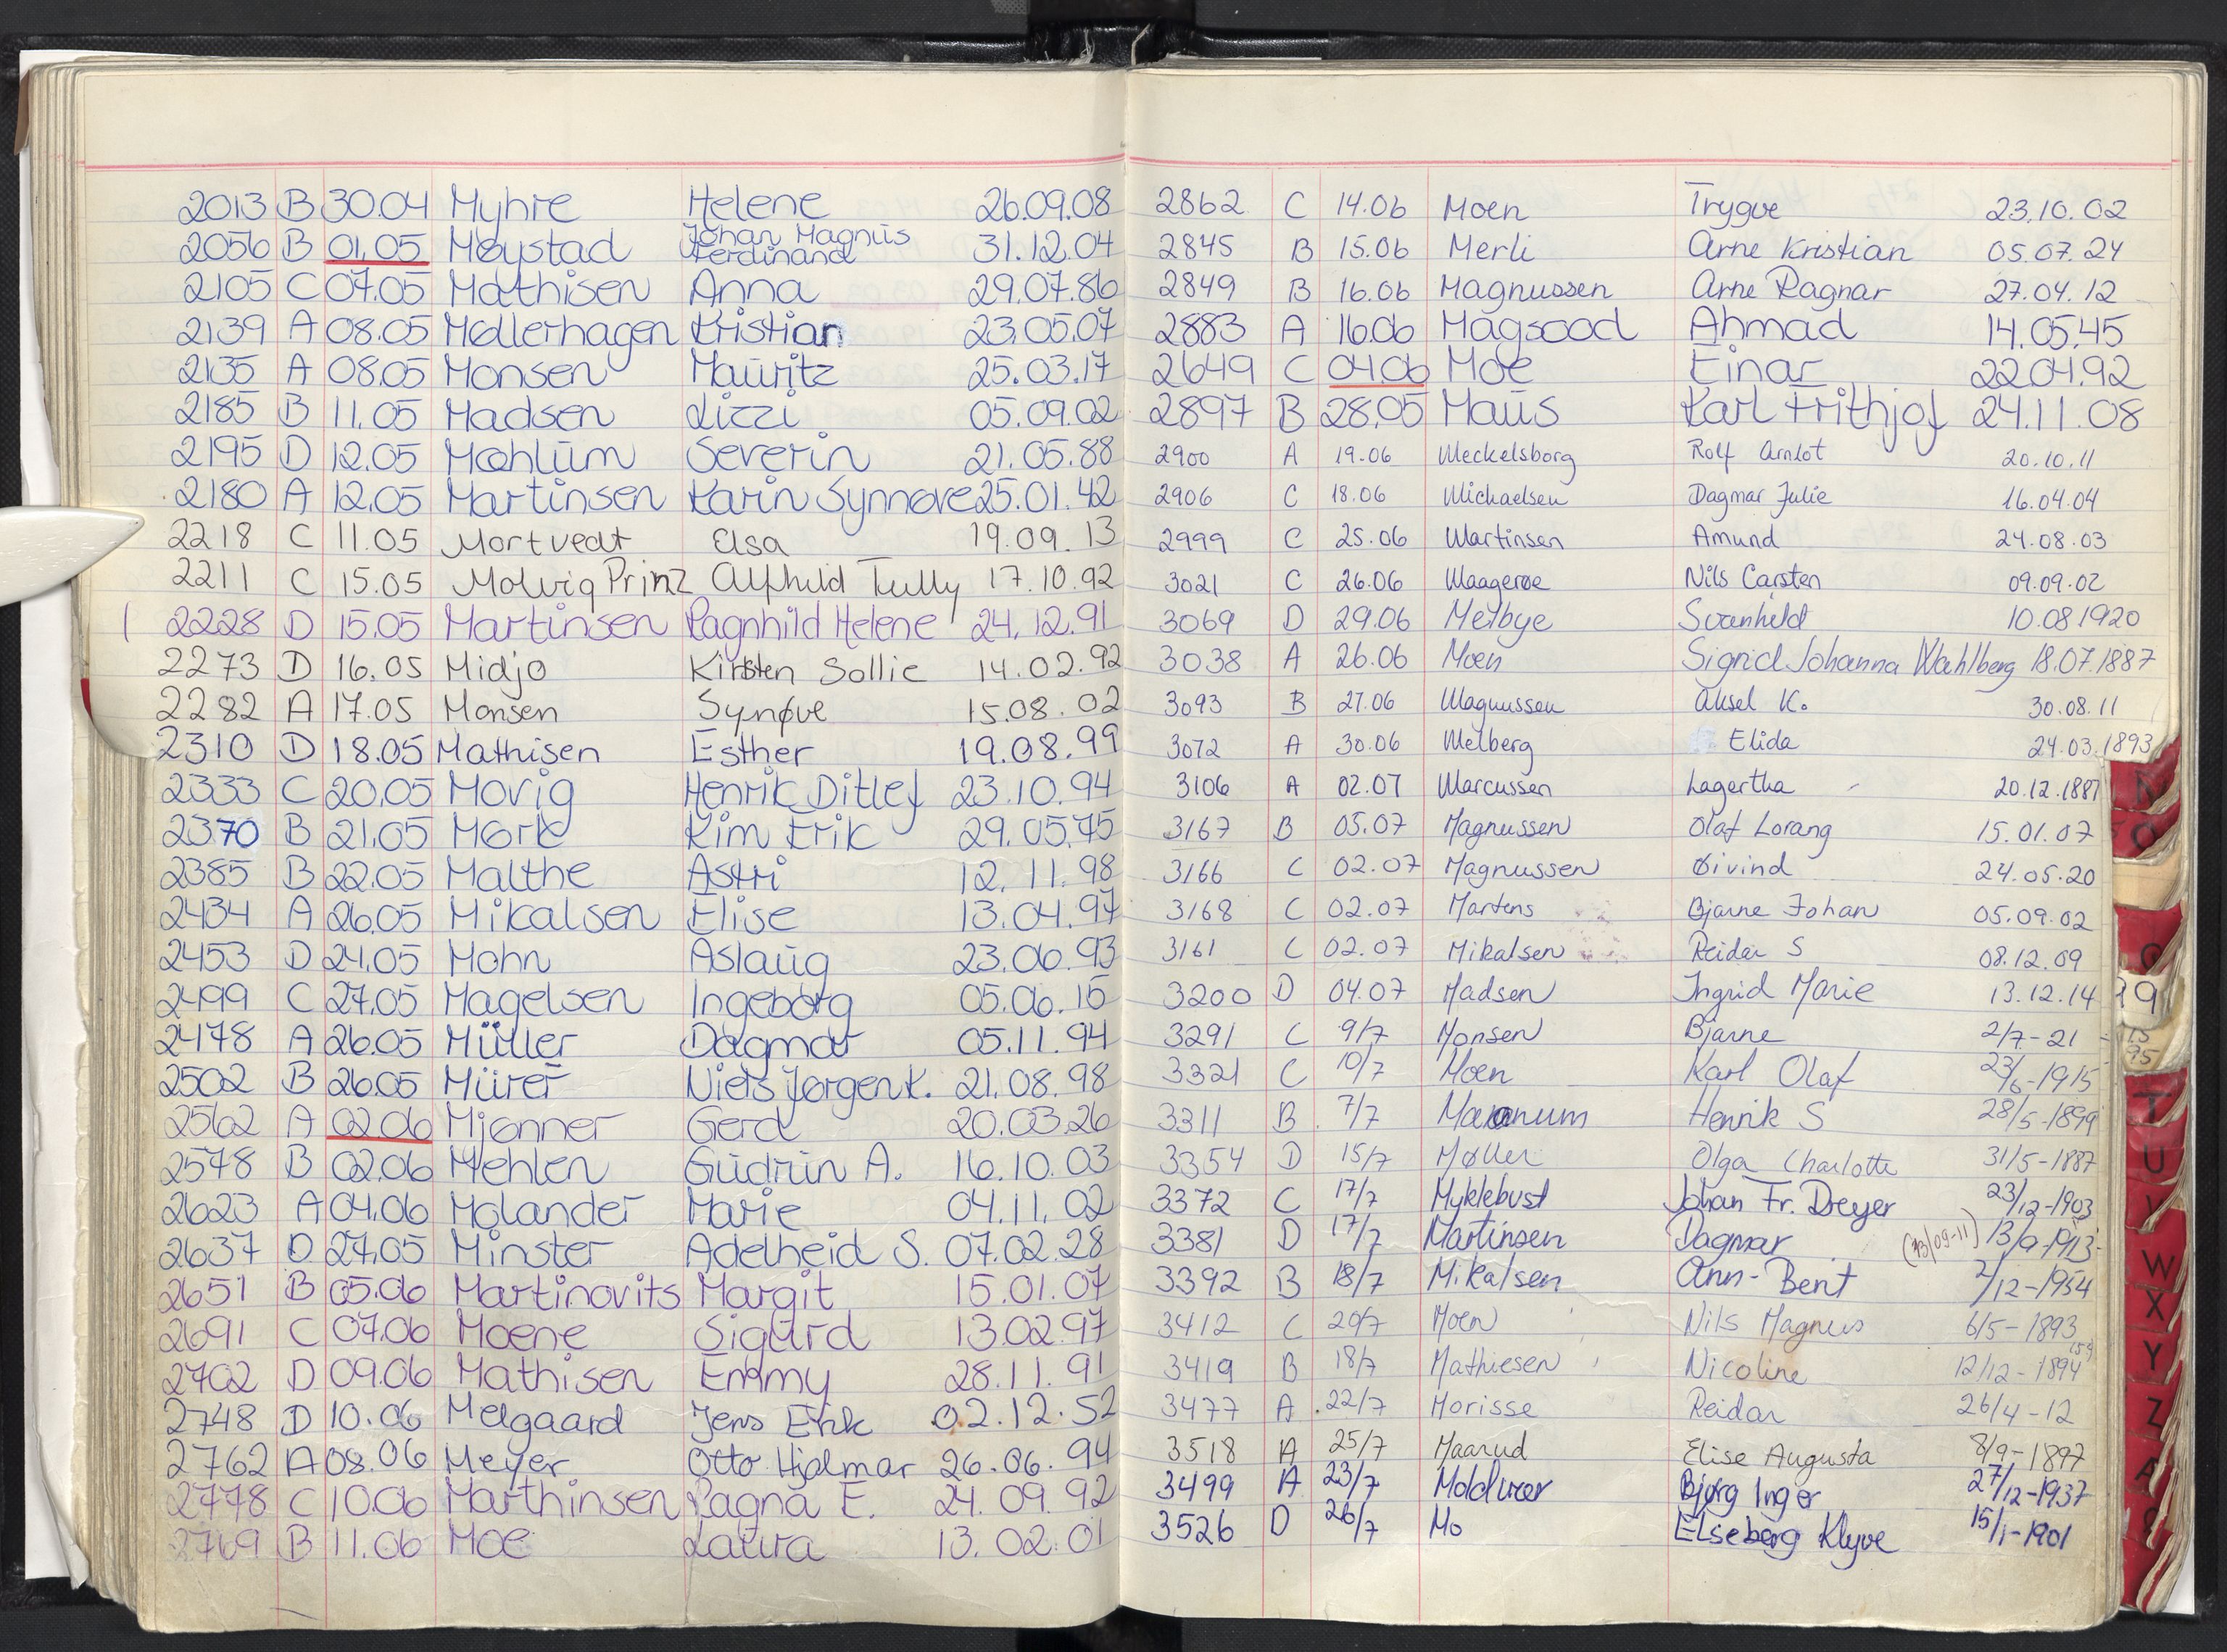 2013 B 30.04 Myhre Helene 26.09.08
2056 B 01.05 Møystad Johan Magnus Ferdinand 31.12.04
2105 C 07.05 Mathisen Anna 29.07.86
2139 A 08.05 Møllerhagen Kristian 23.05.07
2135 A 08.05 Monsen Mauritz 25.03.17
2185 B 11.05 Madsen Lizzi 05.09.02
2195 D 12.05 Mæhlum Severin 21.05.88
2180 A 12.05 Martinsen Karin Synnøve 25.01.42
2218 C 11.05 Mortvedt Elsa 19.09.13
2211 C 15.05 Molvig Prinz Alfhild Tully 17.10.92
1 2228 D 15.05 Martinsen Ragnhild Helene 24.12.91
2273 D 16.05 Midjo Kirsten Sollie 14.02.92
2282 A 17.05 Monsen Synøve 15.08.02
2310 D 18.05 Mathisen Esther 19.08.99
2333 C 20.05 Movig Henrik Ditlef 23.10.94
2370 B 21.05 Mørk Kim Erik 29.05.75
2385 B 22.05 Malthe Astri 12.11.98
2434 A 26.05 Mikalsen Elise 13.04.97
2453 D 24.05 Mohn Aslaug 23.06.93
2499 C 27.05 Magelsen Ingeborg 05.06.15
2478 A 26.05 Müller Dagmar 05.11.94
2502 B 26.05 Mürer Niels Jørgen K. 21.08.98
2562 A 02.06 Mjønner Gerd 20.03.26
2578 B 02.06 Mehlen Gudrun A. 16.10.03
2623 A 04.06 Molander Marie 04.11.02
2637 D 27.05 Minster Adelheid S. 07.02.28
2651 B 05.06 Martinovits Margit 15.01.07
2691 C 07.06 Moene Sigurd 13.02.97
2702 D 09.06 Mathisen Emmy 28.11.91
2748 D 10.06 Melgaard Jens Erik 02.12.52
2762 A 08.06 Meyer Otto Hjalmar 26.06.94
2778 C 10.06 Marthinsen Ragna E. 24.09.92
2769 B 11.06 Moe Laura 13.02.01
2862 C 14.06 Moen Trygve 23.10.02
2845 B 15.06 Merli Arne Kristian 05.07.24
2849 B 16.06 Magnussen Arne Ragnar 27.04.12
2883 A 16.06 Magsood Ahmad 14.05.45
2649 C 04.06 Moe Einar 22.04.92
2897 B 28.05 Maus Karl Frithjof 24.11.08
2900 A 19.06 Meckelsborg Rolf Arnlot 20.10.11
2906 C 18.06 Michaelsen Dagmar Julie 16.04.04
2999 C 25.06 Martinsen Amund 24.08.03
3021 C 26.06 Maagerøe Nils Carsten 09.09.02
3069 D 29.06 Melbye Svanhild 10.08.1920
3038 A 26.06 Moen Sigrid Johanna Wahlberg 18.07.1887
3093 B 27.06 Magnussen Aksel K. 30.08.11
3072 A 30.06 Melberg Elida 24.03.1893
3106 A 02.07 Marcussen Lagertha 20.12.1887
3167 B 05.07 Magnussen Olaf Lorang 15.01.07
3166 C 02.07 Magnussen Øivind 24.05.20
3168 C 02.07 Martens Bjarne Johan 05.09.02
3161 C 02.07 Mikalsen Reidar S 08.12.09
3200 D 04.07 Madsen Ingrid Marie 13.12.14
3291 C 9/7 Monsen Bjarne 2/7-21
3321 C 10/7 Moen Karl Olaf 23/6-1915
3311 B 7/7 Henrik S 28/5-1899
3354 D 15/7 Møller Olga Charlotte 31/5-1887
3372 C 17/7 Myklebust Johan Fr. Dreyer 23/12-1903
3381 D 17/7 Martinsen Dagmar (13/09-11) 13/9-1913
3392 B 18/7 Mikalsen Ann-Berit 2/12-1954
3412 C 20/7 Moen Nils Magnus 6/5-1893
3419 B 18/7 Mathiesen Nicoline 12/12-1894
3477 A 22/7 Morisse Reidar 26/4-12
3518 A 25/7 Maarud Elise Augusta 8/9-1897
3499 A 23/7 Bjørg Inger 27/12-1937
3526 D 26/7 Mo Elseberg Klyve 15/1-1901
N
O
T
U
V
W
X
Y
Z